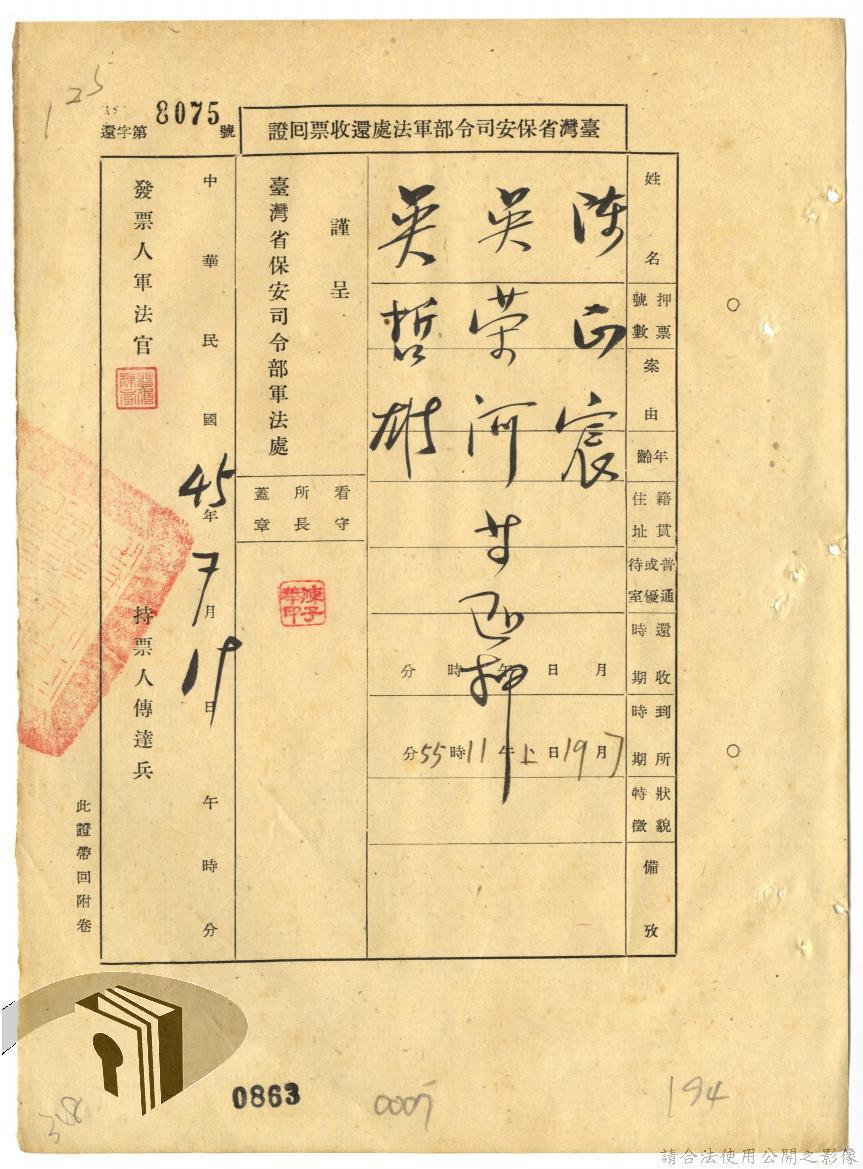 125
還字第 8075 號
臺灣省保安司令部軍法處還收票回證
姓名
押票號數
案由
年齡
籍貫住址
普通或優待室
還收時期
到所時期
狀貌特徵
備攷
陳正宸
吳荣河
吳哲雄
还押
月 日 午 時 分
7月19日上午11時55分
謹呈
臺灣省保安司令部軍法處
看守所長蓋章
中華民國45年7月19日 午 時 分
發票人軍法官
持票人傳達兵
此證帶回附卷
0863
0007
194
348
請合法使用公開之影像